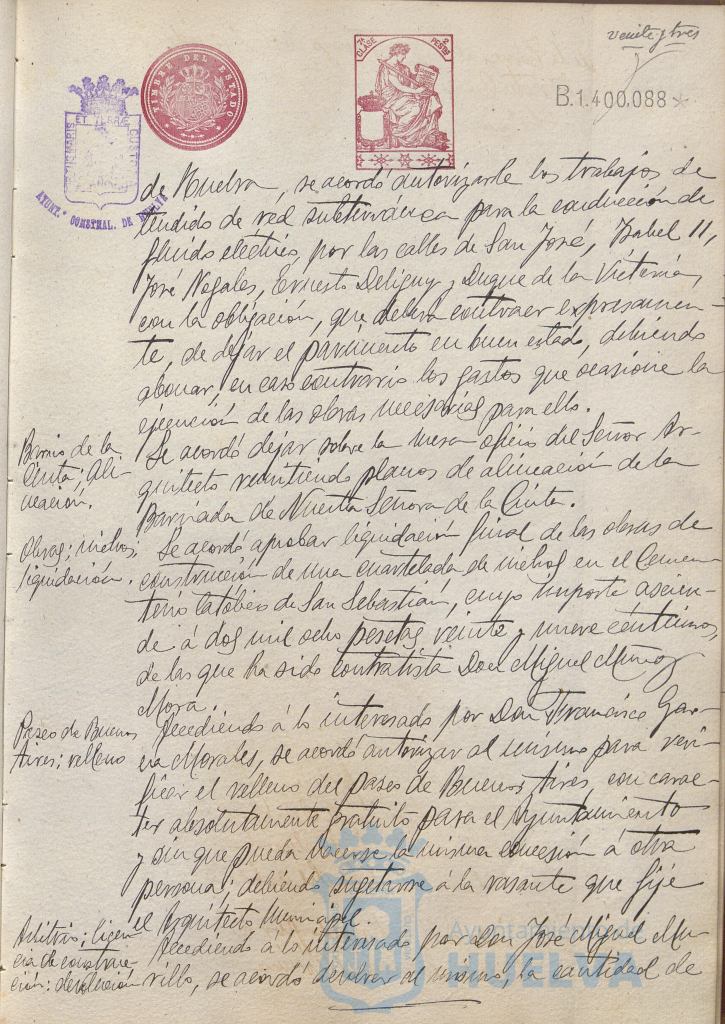 veinte y tres
TIMBRE DEL ESTADO
7ª CLASE 2 PESTAS
B.1.400,088
AYUNTº CONSTNAL. DE HUELVA
de Huelva, se acordó autorizarle los trabajos de
tendido de red subterránea para la conducción de
fluido electrico, por las calles de San José, Isabel II,
José Nogales, Ernesto Deligny y Duque de la Victoria,
con la obligación, que deberá contraer expresamen-
te, de dejar el pavimento en buen estado, debiendo
abonar, en caso contrario los gastos que ocasione la
ejecución de las obras necesarias para ello.
Barrio de la
Cinta; ali-
neación.
Se acordó dejar sobre la mesa oficio del Señor Ar-
quitecto remitiendo planos de alineación de la
Barriada de Nuestra Señora de la Cinta.
Obras; nichos;
liquidación.
Se acordó aprobar liquidación final de las obras de
construcción de una cuartelada de nichos en el Cemen-
terio Católico de San Sebastián, cuyo importe ascien-
de á dos mil ocho pesetas veinte y nueve céntimos,
de las que ha sido contratista Don Miguel Muñoz
Mora.
Paseo de Buenos
Aires; relleno
Accediendo á lo interesado por Don Francisco Gar-
cia Morales, se acordó autorizar al mismo para veri-
ficar el relleno del paseo de Buenos Aires, con carac-
ter absolutamente gratuito para el Ayuntamiento
y sin que pueda hacerse la misma concesión á otra
persona; debiendo sugetarse á la rasante que fije
el Arquitecto Municipal.
Arbitrios; licen-
cia de construc-
ción: devolución
Accediendo á lo interesado por Don José Miguel Mu-
rillo, se acordó devolver al mismo, la cantidad de
Ayuntamiento de
HUELVA